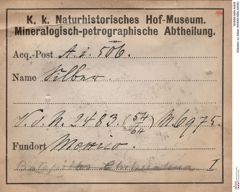 K. k. Naturhistorisches Hof-Museum.
Mineralogisch-petrographische Abtheilung.
Acq.-Post A. i. 506.
Name Silber
V. o. N. 2483. (54/64) M 6975.
Fundort Mexico.
I